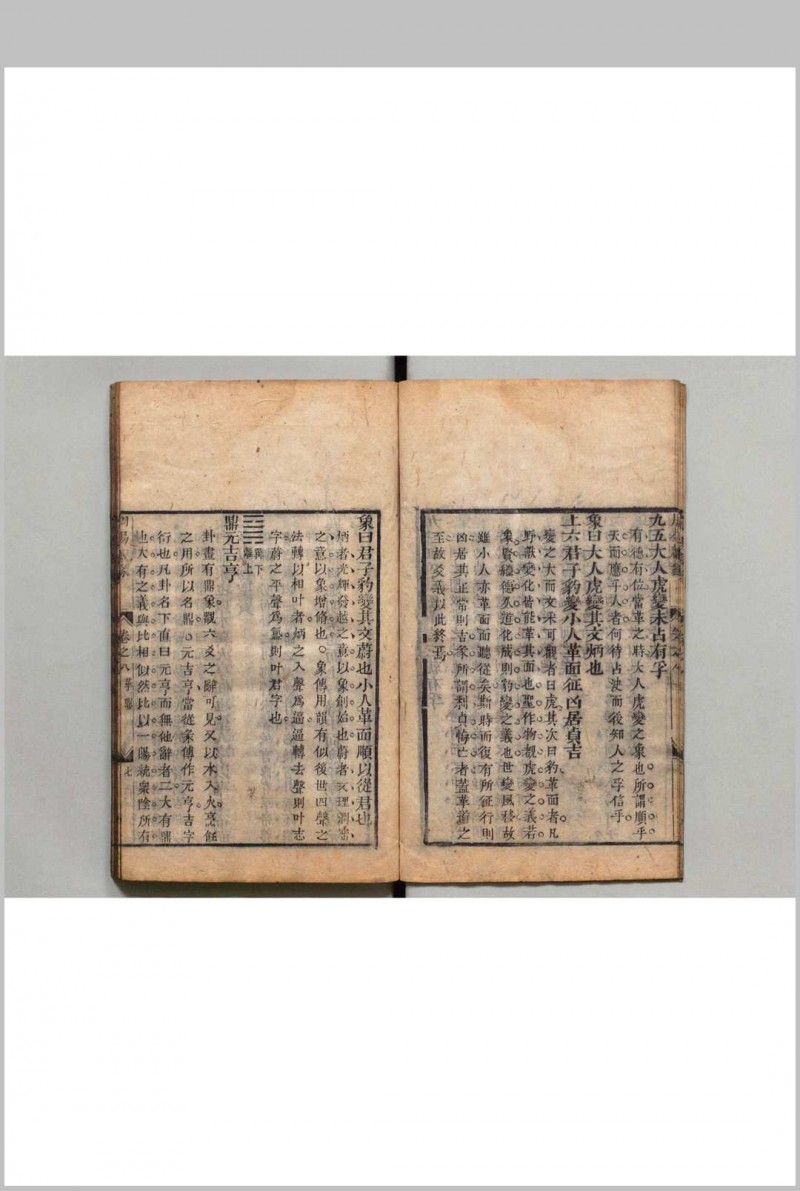 九五大人虎變未占有孚
有德有位當革之時大人虎變之象也所謂順乎
天而應乎人者何待占決而後知人之孚信乎
象曰大人虎變其文炳也
上六君子豹變小人革面征凶居貞吉
變之大而文采可觀者曰虎其次曰豹革面者凡
野獸變化皆能革其面也聖作物覩虎變之義若
象賢繼德久道化成則豹變之義也世變風移故
雖小人亦革面而聽從矣斯時而復有所征行則
凶居其正常則吉彖所謂利貞悔亡者蓋革道之
至故爻義以此終焉
象曰君子豹變其文蔚也小人革面順以從君也
炳者光輝發越之意以象創始也蔚者文理潤密
之意以象增脩也象傳用韻有似後世四聲之
法轉以相叶者炳之入聲爲逼逼轉去聲則叶志
字蔚之平聲爲熅則叶君字也
巽下
離上
鼎元吉亨
卦畫有鼎象觀六爻之辭可見又以木入火烹飪
之用所以名鼎元吉亨當從彖傳作元亨吉字
衍也凡卦名下直曰元亨而無他辭者二大有鼎
也大有之義與比相似然比以一陽統衆陰所有
卷之八 革 鼎
七